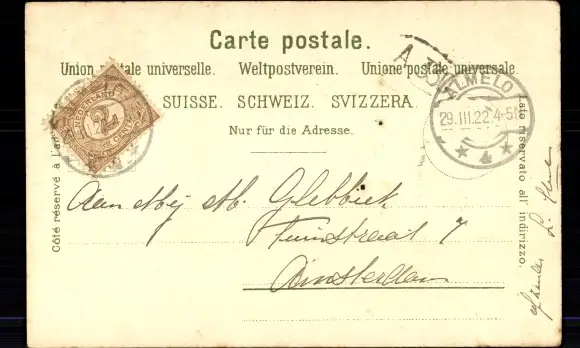 Carte postale.
Union postale universelle. Weltpostverein. Unione postale universale.
SUISSE. SCHWEIZ. SVIZZERA.
Nur für die Adresse.
NEDERLAND
2
CENT
ALMELO
29.III.22.4-5N
4
Côté réservé à l'a
Lato riservato all' indirizzo.
Aan Mej. M. Glebbeek
Tuinstraat 7
Amsterdam